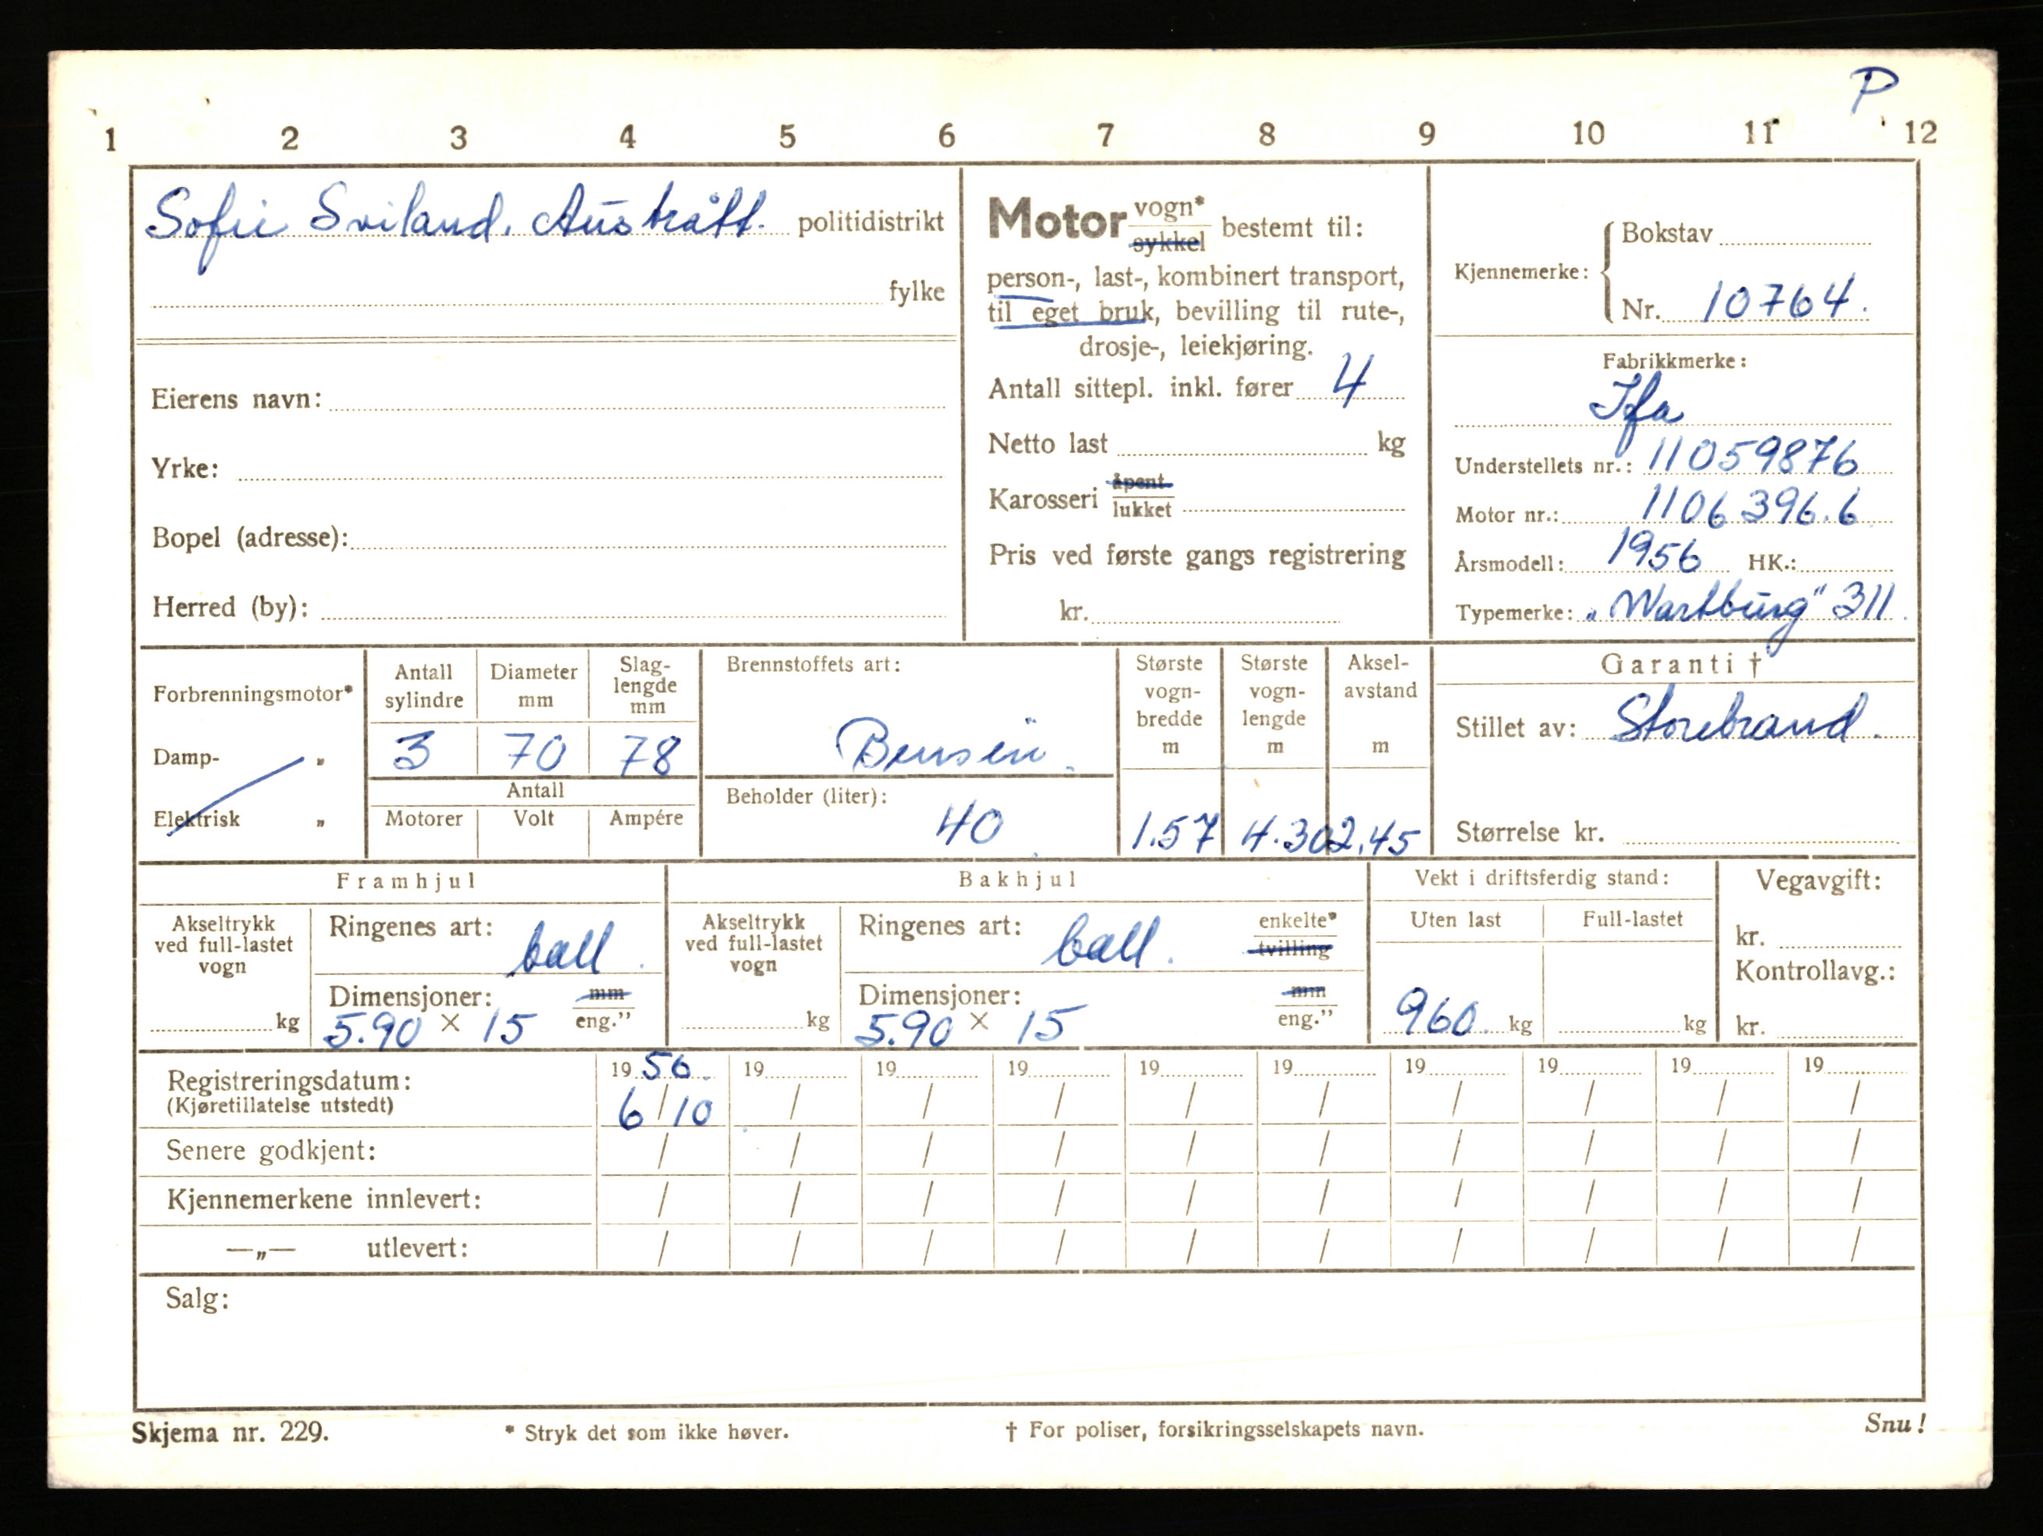 P
1 2 3 4 5 6 7 8 9 10 11 12
Sofie Sviland, Austrått. politidistrikt
fylke
Eierens navn:
Yrke:
Bopel (adresse):
Herred (by):
Motor vogn* sykkel bestemt til:
person-, last-, kombinert transport,
til eget bruk, bevilling til rute-,
drosje-, leiekjøring.
Antall sittepl. inkl. fører 4
Netto last kg
Karosseri åpent lukket
Pris ved første gangs registrering
kr.
Kjennemerke: Bokstav
Nr. 10764.
Fabrikkmerke:
Ifa
Understellets nr.: 11059876
Motor nr.: 1106396.6
Årsmodell: 1956 HK.:
Typemerke: „Wartburg" 311.
Forbrenningsmotor*
Damp- „
Elektrisk „
Antall sylindre
Diameter mm
Slag-lengde mm
3 70 78
Antall
Motorer Volt Ampére
Brennstoffets art:
Bensin.
Beholder (liter):
40
Største vogn-bredde m
1.57
Største vogn-lengde m
4.30
Aksel-avstand m
2.45
Garanti †
Stillet av: Storebrand.
Størrelse kr.
Framhjul
Akseltrykk ved full-lastet vogn
kg
Ringenes art: ball.
Dimensjoner: mm eng.”
5.90 × 15
Bakhjul
Akseltrykk ved full-lastet vogn
kg
Ringenes art: ball. enkelte* tvilling
Dimensjoner: mm eng.”
5.90 × 15
Vekt i driftsferdig stand:
Uten last Full-lastet
960 kg kg
Vegavgift:
kr.
Kontrollavg.:
kr.
Registreringsdatum: 1956. 19 19 19 19 19 19 19 19 19
(Kjøretillatelse utstedt) 6/10 / / / / / / / / /
Senere godkjent: / / / / / / / / / /
Kjennemerkene innlevert: / / / / / / / / / /
—„— utlevert: / / / / / / / / / /
Salg:
Skjema nr. 229. * Stryk det som ikke høver. † For poliser, forsikringsselskapets navn. Snu!